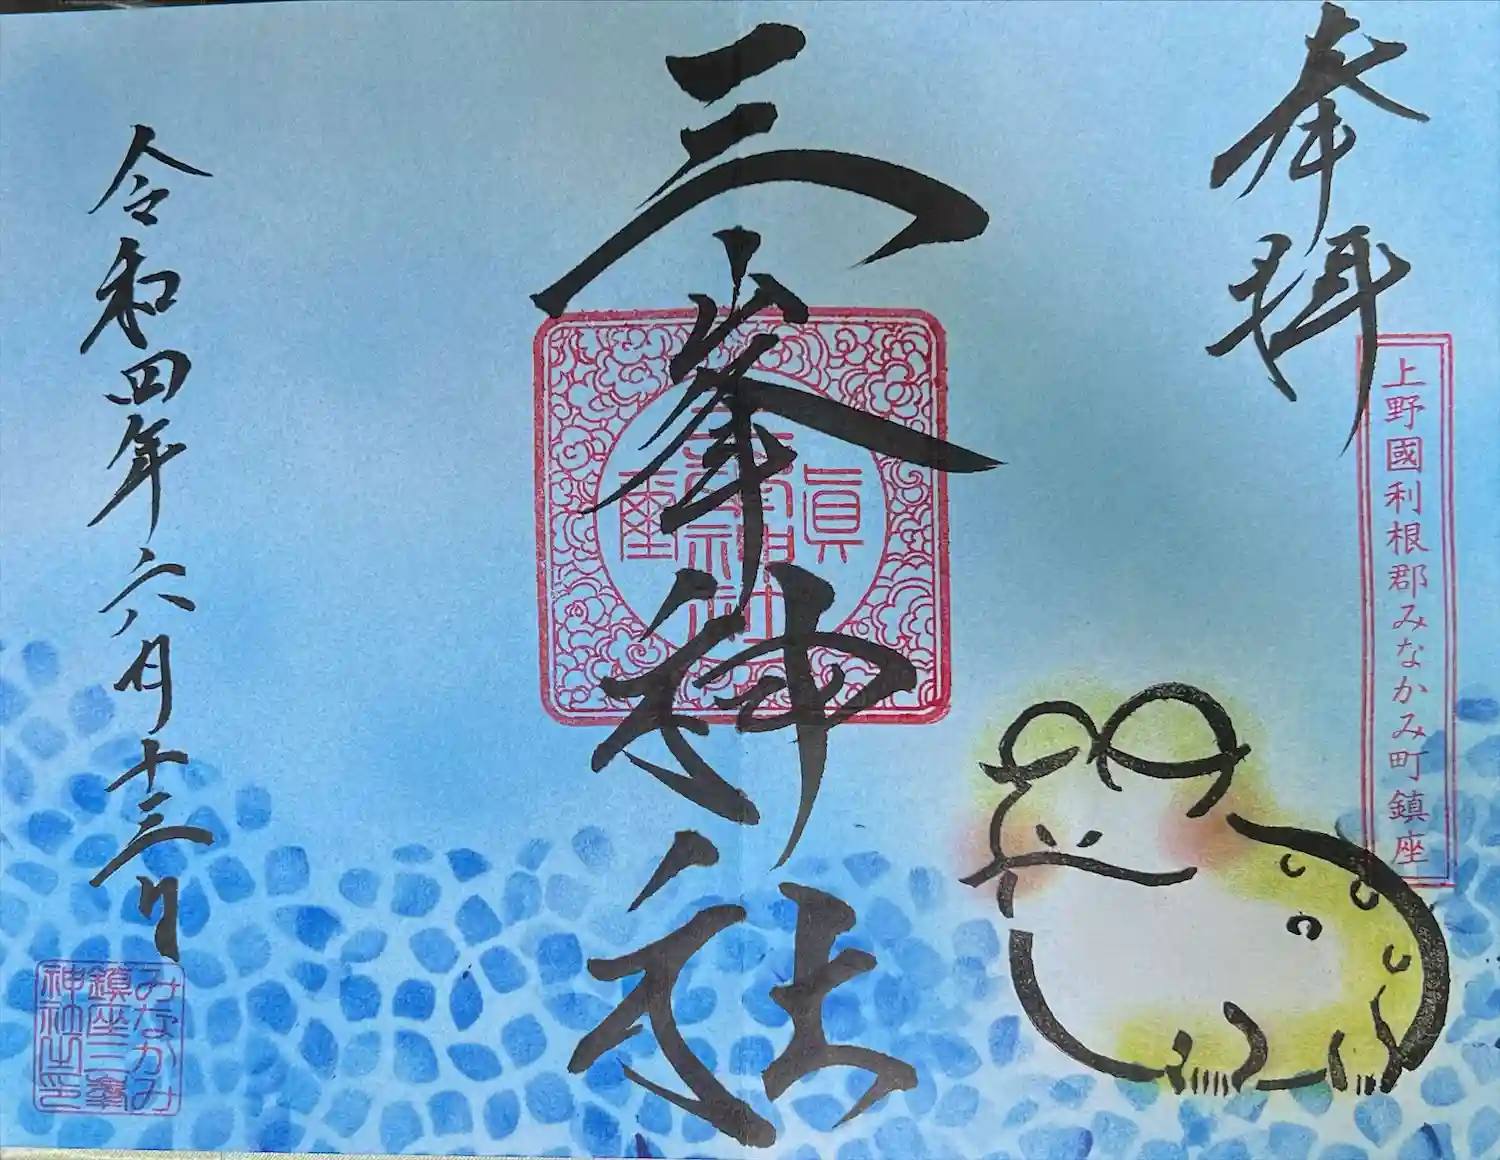 奉拝
上野國利根郡みなかみ町鎮座
三峯神社
令和四年六月十三日
みなかみ
鎮座三峯
神社之印